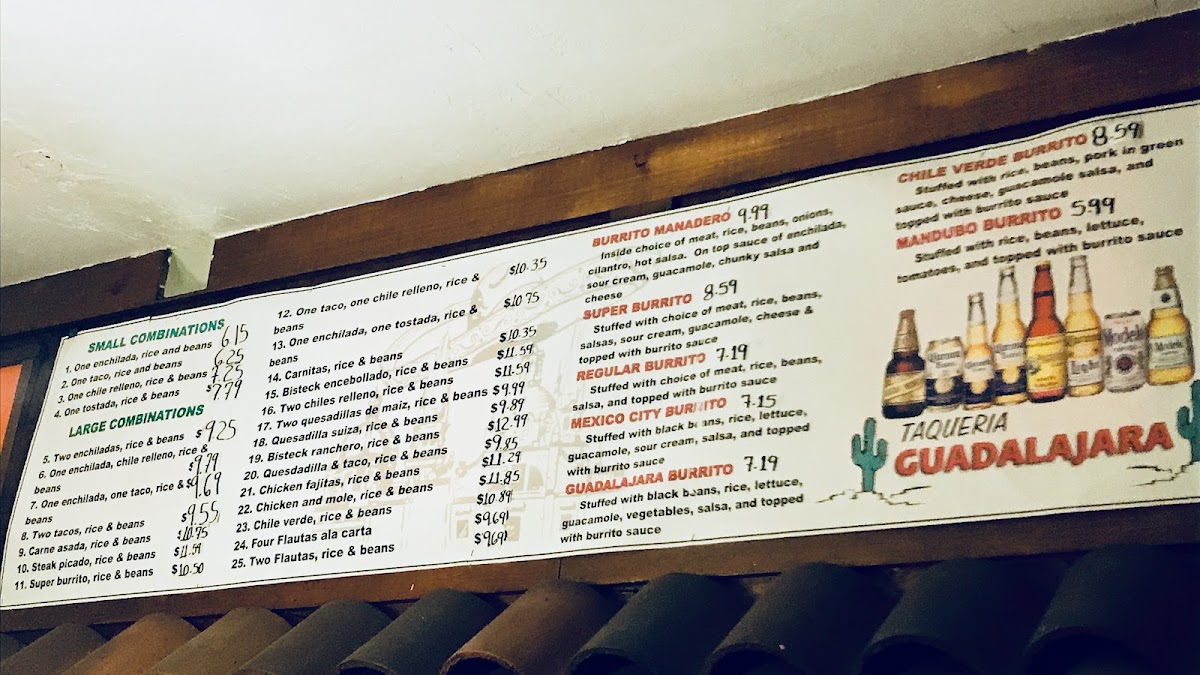 SMALL COMBINATIONS
1. One enchilada, rice and beans 6.15
2. One taco, rice and beans 6.25
3. One chile relleno, rice & beans 7.25
4. One tostada, rice & beans $7.79
LARGE COMBINATIONS
5. Two enchiladas, rice & beans $9.25
6. One enchilada, chile relleno, rice &
beans $9.79
7. One enchilada, one taco, rice & $9.69
beans
8. Two tacos, rice & beans $9.55
9. Carne asada, rice & beans $10.75
10. Steak picado, rice & beans $11.59
11. Super burrito, rice & beans $10.50
12. One taco, one chile relleno, rice & $10.35
beans
13. One enchilada, one tostada, rice & $10.75
beans
14. Carnitas, rice & beans $10.35
15. Bisteck encebollado, rice & beans $11.59
16. Two chiles relleno, rice & beans $11.59
17. Two quesadillas de maiz, rice & beans $9.99
18. Quesadilla suiza, rice & beans $9.89
19. Bisteck ranchero, rice & beans $12.99
20. Quesdadilla & taco, rice & beans $9.85
21. Chicken fajitas, rice & beans $11.29
22. Chicken and mole, rice & beans $11.85
23. Chile verde, rice & beans $10.89
24. Four Flautas ala carta $9.69
25. Two Flautas, rice & beans $9.69
BURRITO MANADERO 9.99
Inside choice of meat, rice, beans, onions,
cilantro, hot salsa. On top sauce of enchilada,
sour cream, guacamole, chunky salsa and
cheese
SUPER BURRITO 8.59
Stuffed with choice of meat, rice, beans,
salsas, sour cream, guacamole, cheese &
topped with burrito sauce
REGULAR BURRITO 7.19
Stuffed with choice of meat, rice, beans,
salsa, and topped with burrito sauce
MEXICO CITY BURRITO 7.15
Stuffed with black beans, rice, lettuce,
guacamole, sour cream, salsa, and topped
with burrito sauce
GUADALAJARA BURRITO 7.19
Stuffed with black beans, rice, lettuce,
guacamole, vegetables, salsa, and topped
with burrito sauce
CHILE VERDE BURRITO 8.59
Stuffed with rice, beans, pork in green
sauce, cheese, guacamole salsa, and
topped with burrito sauce
MANDUBO BURRITO 5.99
Stuffed with rice, beans, lettuce,
tomatoes, and topped with burrito sauce
Modelo
TAQUERIA
GUADALAJARA